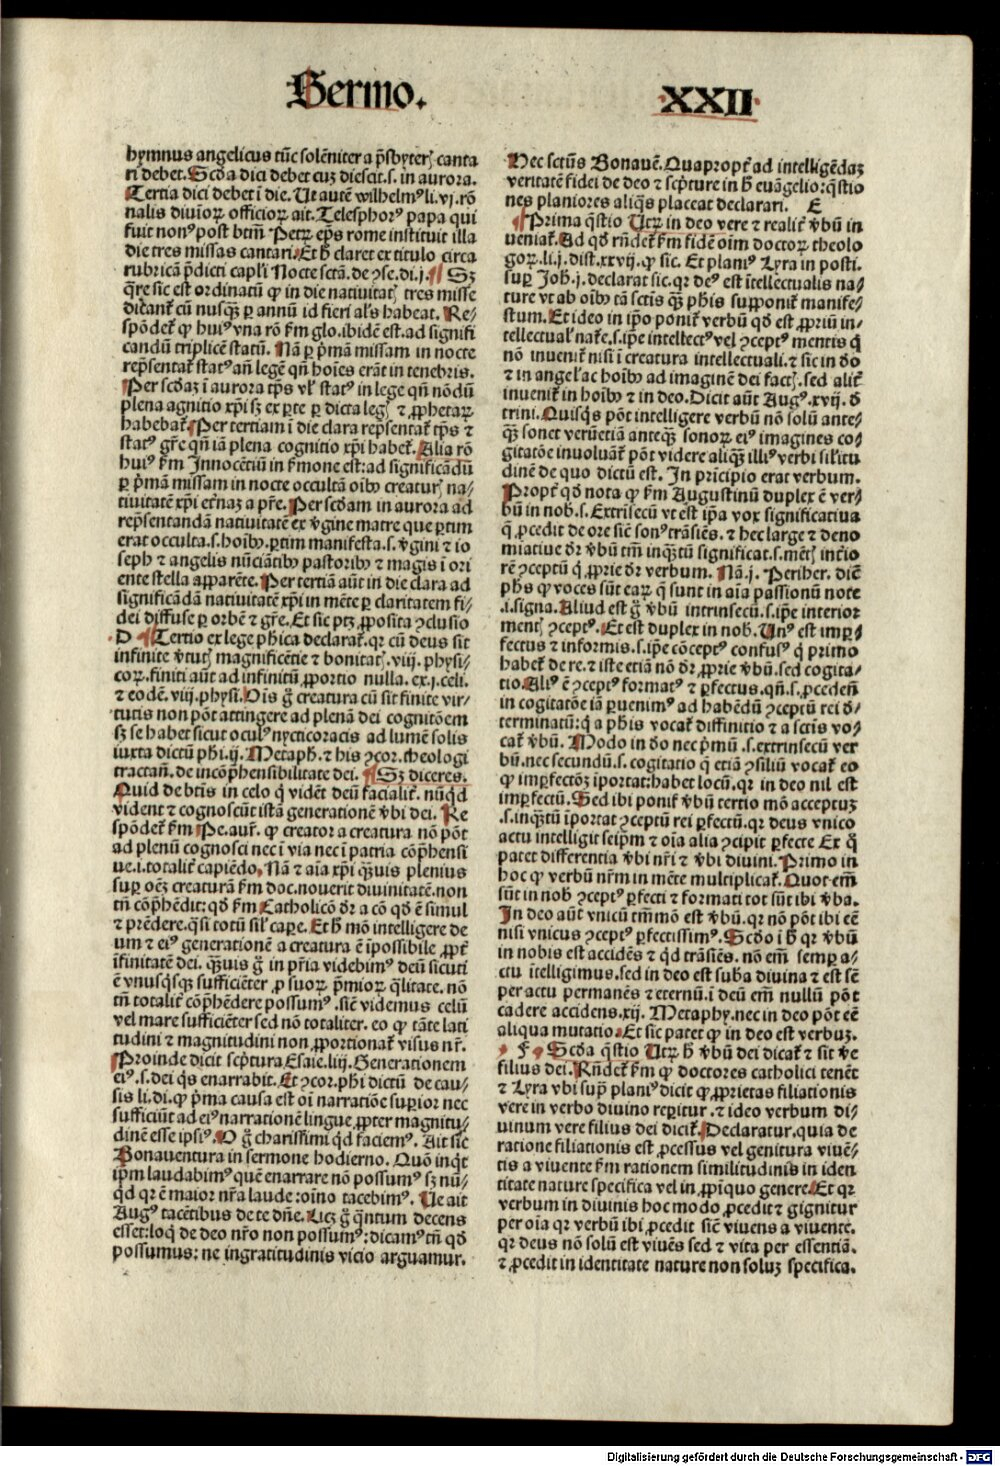 Sermo.
XXII
hymnus angelicus tūc solēniter a p̄sbyteꝝ canta
ri debet. Scd̄a dici debet cuꝫ diescit.s. in aurora.
Tertia dici debet ī die. Ut autē wilhelmꝰ li.vj. rō
nalis diuioꝝ officioꝝ ait. Telesphorꝰ papa qui
fuit nonꝰ post btm̄ Petꝝ ep̄s rome instituit illa
die tres missas cantari. Et h̄ claret ex titulo circa
rubricā p̄dicti capl'i Nocte sctā. de ꝯse. di.j. Sꝫ
q̄re sic est ordinatū ꝙ in die natiuitatꝭ tres misse
dicant᷑ cū nusqꝫ per annū id fieri al's habeat. Re-
spōdet᷑ ꝙ huiꝰ vna rō ẜm glo. ibidē est. ad signifi
candū triplicē statū. Nā ꝑ p̄mā missam in nocte
rep̄sentat᷑ statꝰ añ legē qñ hoīes erāt in tenebris.
Per scd̄aꝫ ī aurora tp̄s vl' statꝰ in lege qñ nōdū
plena agnitio xp̄i sꝫ ex ꝑte ꝑ dicta legꝭ ⁊ ꝓphetaꝝ
habebat᷑. Per tertiam ī die clara rep̄sentat᷑ tp̄s ⁊
statꝰ gr̄e qñ iā plena cognitio xp̄i habet᷑. Alia rō
huiꝰ ẜm Innocētiū in ẜmone est: ad significādū
ꝑ p̄mā missam in nocte occultā oībꝫ creaturꝭ na-
tiuitatē xp̄i et̄naꝫ a pr̄e. Per scd̄am in aurora ad
rep̄sentandā natiuitatē ex v̄gine matre que ꝑtim
erat occulta.s. hoībꝫ. ꝑtim manifesta.s. v̄gini ⁊ io
seph ⁊ angelis nūciātibꝫ pastoribꝫ ⁊ magis ī ori
ente stella apparēte. Per tertiā aūt in die clara ad
significādā natiuitatē xp̄i in mēte ꝑ claritatem fi-
dei diffuse ꝑ orbē ⁊ gr̄e. Et sic ptꝫ ꝓposita ꝯclusio
D Tertio ex lege ph̄ica declarat᷑. qꝛ cū deus sit
infinite v̄tutꝭ magnificētie ⁊ bonitatꝭ. viij. physi-
coꝝ. finiti aūt ad infinitū ꝓportio nulla. ex.j. celi.
⁊ eodē. viij. physi. Oīs g̊ creatura cū sit finite vir-
tutis non pōt attingere ad plenā dei cognitōem
sꝫ se habet sicut oculꝰ nycticoracis ad lumē solis
iuxta dictū phi.ij. Metaph. ⁊ his ꝯcor. theologi
tractant. de incōp̄hensibilitate dei. Sꝫ diceres.
Quid de btīs in celo q̇ vidēt deū facialit᷑. nūqd̄
vident ⁊ cognoscūt istā generationē v̄bi dei. Re
spōdet᷑ ẜm Pe. aur. ꝙ creator a creatura nō pōt
ad plenū cognosci nec ī via nec ī patria cōp̄hensi
ue.i. totalit᷑ capiēdo. Nā ⁊ aīa xp̄i qꝫuis plenius
suꝑ oēꝫ creaturā ẜm doc. nouerit diuinitatē. non
tn̄ cōp̄hēdit: qd̄ ẜm Catholicō dr̄ a cō qd̄ ē simul
⁊ prēdere. q̄si totū sil' caꝑe. Et h̄ mō intelligere de
um ⁊ eiꝰ generationē a creatura ē īpossibile ꝓpt᷑
īfinitatē dei. qꝫuis g̊ in pr̄ia videbimꝰ deū sicuti
ē vnusqsqꝫ sufficiēter ꝓ suoꝝ p̄mioꝝ q̄litate. nō
tn̄ totalit᷑ cōp̄hēdere possumꝰ. sic̄ videmus celū
vel mare sufficiēter sed nō totaliter. eo ꝙ tāte lati
tudini ⁊ magnitudini non ꝓportionat᷑ visus nr̄.
Proinde dicit scp̄tura Esaie.liij. Generationem
eiꝰ.s. dei q̇s enarrabit. Et ꝯcor. phi dictū de cau-
sis li. di. ꝙ p̄ma causa est oī narratiōe suꝑior nec
sufficiūt ad eiꝰ narrationē lingue ꝓpter magnitu-
dinē esse ipsiꝰ. O g̊ charissimi qd̄ faciemꝰ. Ait sic
Bonauentura in sermone hodierno. Quō inqt
ip̄m laudabimꝰ quē enarrare nō possumꝰ sꝫ nū-
qd̄ qꝛ ē maior nr̄a laude: oīno tacebimꝰ. Ue ait
Augꝰ tacētibus de te dn̄e. Licꝫ g̊ q̄ntum decens
esset: loq̇ de deo nr̄o non possumꝰ: dicamꝰ tn̄ qd̄
possumus: ne ingratitudinis vicio arguamur.
Hec sctūs Bonauē. Quapropt᷑ ad intelligēdaꝫ
veritatē fidei de deo ⁊ scp̄ture in h̄ euāgelio: q̄stio
nes planiores aliq̄s placeat declarari. E
Prima q̄stio Utꝝ in deo vere ⁊ realit᷑ v̄bū in
ueniat᷑. Ad qd̄ rn̄det᷑ ẜm fidē oīm doctoꝝ theolo
goꝝ. li.j. dist.xxvij. ꝙ sic. Et planiꝰ Lyra in posti.
suꝑ Joh.j. declarat sic. qꝛ deꝰ est ītellectualis na-
ture vt ab oībꝫ tā sctīs qꝫ phis supponit᷑ manife-
stum. Et ideo in ip̄o ponit᷑ verbū qd̄ est ꝓpriū in-
tellectual' nat᷑e.s. ip̄e intellectꝰ vel ꝯceptꝰ mentis q̇
nō inuenit᷑ nisi ī creatura intellectuali. ⁊ sic in do
⁊ in angel' ac hoībꝫ ad imaginē dei factꝭ. sed alit᷑
inuenit᷑ in hoībꝫ ⁊ in deo. Dicit aūt Augꝰ.xvij. d̄
trini. Quisq̇s pōt intelligere verbū nō solū ante-
qꝫ sonet verūetiā anteqꝫ sonoꝝ eiꝰ imagines co-
gitatōe inuoluāt᷑ pōt videre aliqꝫ illiꝰ verbi sil'itu
dinē de quo dictū est. In prīcipio erat verbum.
Propt᷑ qd̄ nota ꝙ ẜm Augustinū duplex ē ver-
bū in nob̄.s. Extrīsecū vt est ip̄a vox significatiua
q̄ ꝓcedit de ore siē sonꝰ trāsiēs. ⁊ hec large ⁊ deno
miatiue dr̄ v̄bū tm̄ inqꝫtū significat.s. mētꝭ inc̄io
rē ꝯceptū q̇ ꝓprie dr̄ verbum. Nā.j. Periher. dic̄
phs ꝙ voces sūt eaꝝ q̄ sunt in aīa passionū note
.i. signa. Aliud est g̊ v̄bū intrinsecū.s. ip̄e interior
mentꝭ ꝯceptꝰ. Et est duplex in nob̄. Unꝰ est imꝑ-
fectus ⁊ informis.s. ip̄e cōceptꝰ confusꝰ q̇ primo
habet᷑ de re. ⁊ iste etiā nō dr̄ ꝓprie v̄bū. sed cogita-
tio. Aliꝰ ē ꝯceptꝰ formatꝰ ⁊ ꝑfectus. qn̄.s. ꝓcedeñ
in cogitatōe iā ꝑuenimꝰ ad habēdū ꝯceptū rei d̄-
terminatū: q̇ a phis vocat᷑ diffinitio ⁊ a sctīs vo-
cat᷑ v̄bū. Modo in do nec p̄mū .s. extrinsecū ver
bū. nec secundū.s. cogitatio q̄ etiā ꝯsiliū vocat᷑ eo
ꝙ imꝑfectōꝫ īportat: habet locū. qꝛ in deo nil est
imꝑfectū. Sed ibi ponit᷑ v̄bū tertio mō acceptuꝫ
.s. inqꝫtū īportat ꝯceptū rei ꝑfectū. qꝛ deus vnico
actu intelligit seip̄m ⁊ oīa alia ꝯcipit ꝑfecte Ex q̊
patet differentia v̄bi nr̄i ⁊ v̄bi diuini. Primo in
hoc ꝙ verbū nr̄m in mēte multiplicat᷑. Quot em̄
sūt in nob̄ ꝯceptꝰ ꝑfecti ⁊ formati tot sūt ibi v̄ba.
In deo aūt vnicū tm̄mō est v̄bū. qꝛ nō pōt ibi eē
nisi vnicus ꝯceptꝰ ꝑfectissimꝰ. Scd̄o ī h̄ qꝛ v̄bū
in nobis est accidēs ⁊ qd̄ trāsiēs. nō em̄ semꝑ a-
ctu ītelligimus. sed in deo est suba diuina ⁊ est sē
per actu permanēs ⁊ eternū. ī deū em̄ nullū pōt
cadere accidens.xij. Metaphy. nec in deo pōt eē
aliqua mutatio. Et sic patet ꝙ in deo est verbuꝫ.
F Scd̄a q̄stio Utꝝ h̄ v̄bū dei dicat᷑ ⁊ sit v̄e
filius dei. Rn̄det᷑ ẜm ꝙ doctores catholici tenēt
⁊ Lyra vbi supͣ planiꝰ dicit ꝙ ꝓprietas filiationis
vere in verbo diuino reꝑitur. ⁊ ideo verbum di-
uinum vere filius dei dicit᷑. Declaratur. quia de
ratione filiationis est ꝓcessus vel genitura viuē-
tis a viuente ẜm rationem similitudinis in iden
titate nature specifica vel in ꝓpīquo genere. Et qꝛ
verbum in diuinis hoc modo ꝓcedit ⁊ gignitur
per oīa qꝛ verbū ibi ꝓcedit siē viuens a viuente.
qꝛ deus nō solū est viuēs sed ⁊ vita per essentiā.
⁊ ꝓcedit in identitate nature non soluꝫ specifica.
Digitalisierung gefördert durch die Deutsche Forschungsgemeinschaft - DFG